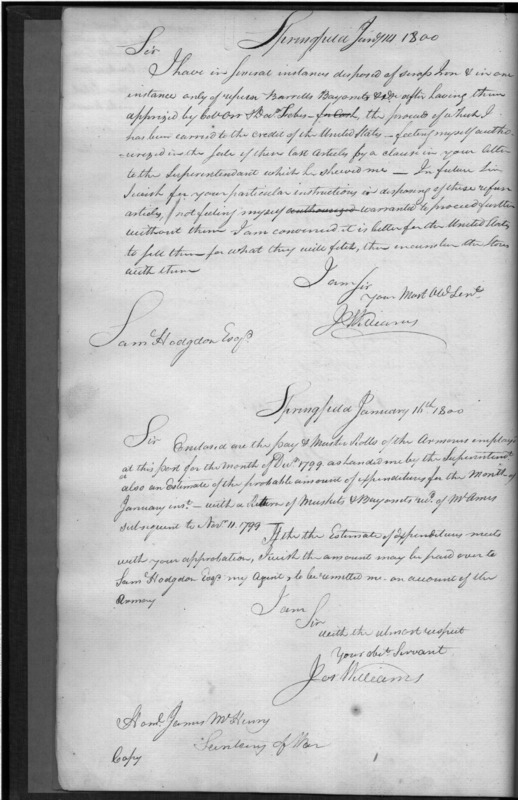 Springfield Jany 14 1800
Sir
I have in several instances disposed of scrap Iron & in one
instance only of refuse Barrells Bayonets & after having them
apprized by the proceeds of which I
has been carried to the credit of the United States - feeling myself autho
-urized in the Sale of these last Articles by a clause in your letter
to the Superintendant which he shewed me - In future Sir
I wish for your particular instructions in disposing of these refuse
articles, not feeling myself authourized warranted to proceed further
without them I am concerned it is better for the United States
to sell them for what they will fetch, then incumber the Stores
with them
I am Sir
Your Most Obdt Servt
Jos Williams
Saml Hodgdon Esqr
Springfield January 16th 1800
Sir Enclosed are the pay & Muster Rolls of the Armorers employd
at this post for the Month of Decr 1799 as handed me by the Superintendt
also an Estimate of the probable amount of expenditures for the Month of
January inst - with a Return of Muskets & Bayonets recd of Mr Ames
subsequent to Novr 11. 1799 If the the Estimate of Expenditures meets
with your approbation, I wish the amount may be paid over to
Saml Hodgdon Esqr my Agent, to be remitted me on account of the
Armory
I am
Sir
with the utmost respect
Your obet Servant
Jos Williams
Honl James McHenry
Secretary of War
Copy